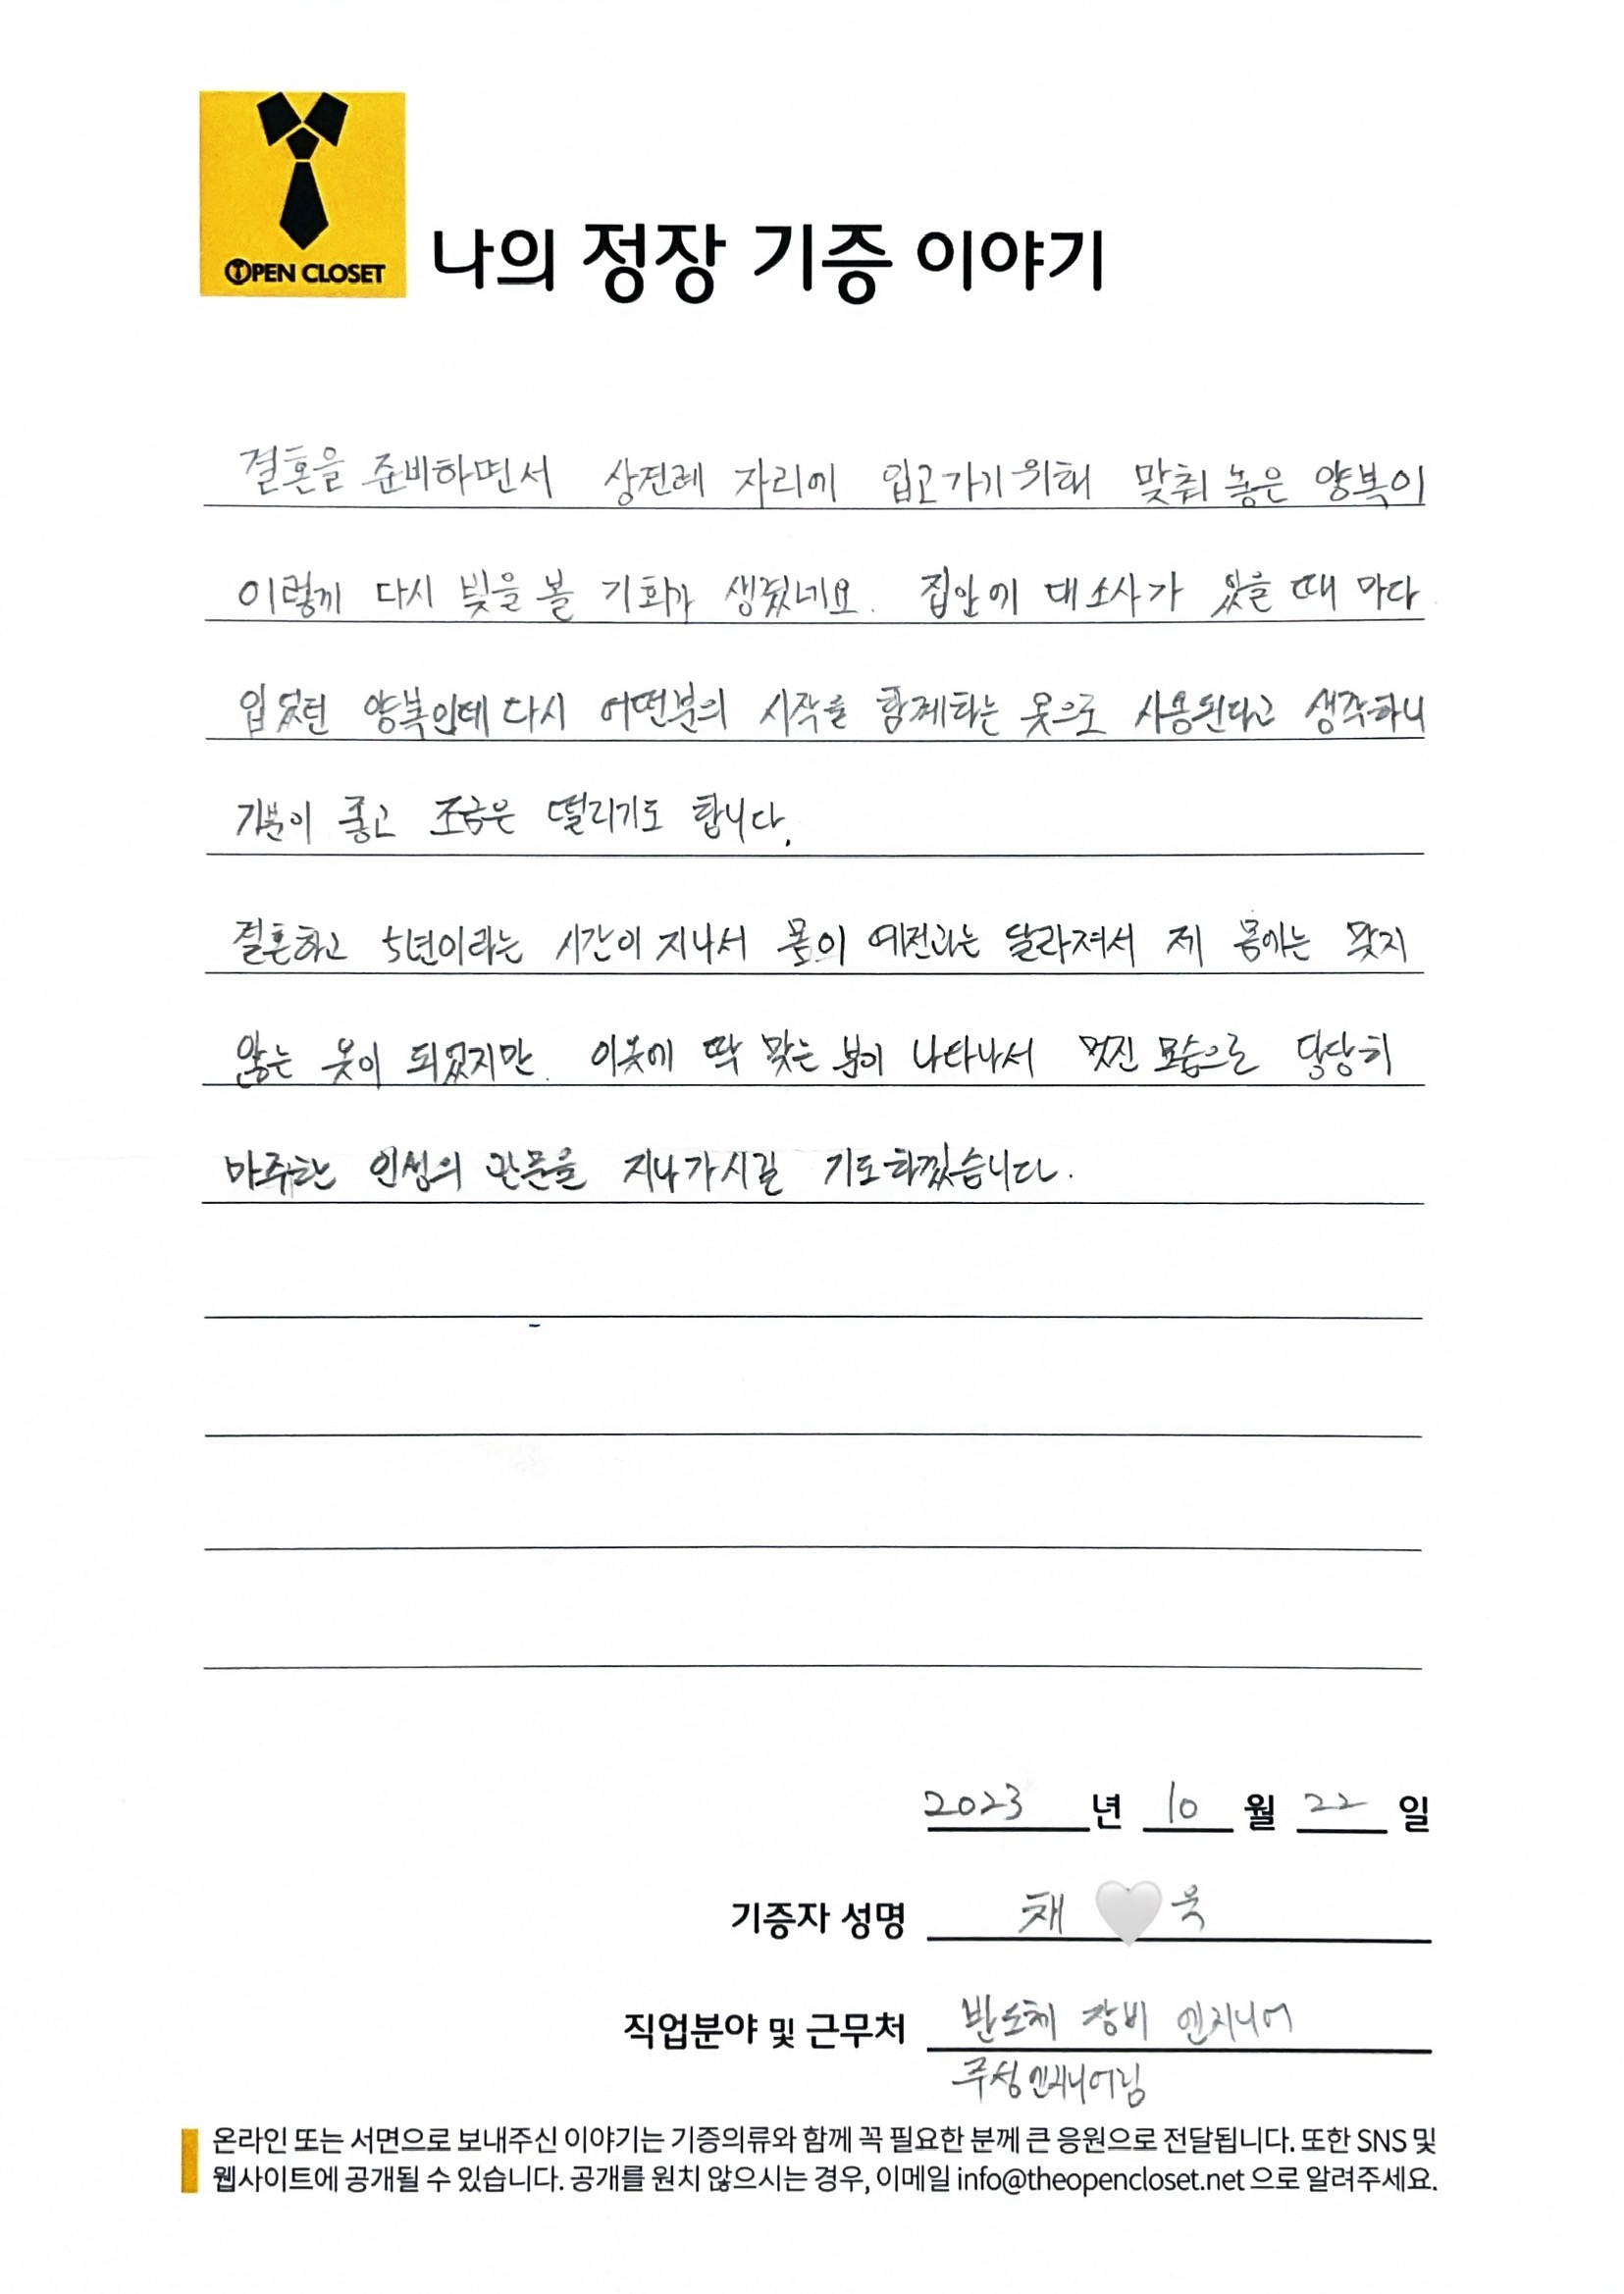 OPEN CLOSET
나의 정장 기증 이야기
결혼을 준비하면서 상견례 자리에 입고가기 위해 맞춰 놓은 양복이
이렇게 다시 빛을 볼 기회가 생겼네요. 집안에 대소사가 있을 때 마다
입었던 양복인데 다시 어떤분의 시작을 함께하는 옷으로 사용된다고 생각하니
기분이 좋고 조금은 떨리기도 합니다.
결혼하고 5년이라는 시간이 지나서 몸이 예전과는 달라져서 제 몸에는 맞지
않는 옷이 되었지만. 이옷에 딱 맞는 분이 나타나서 멋진 모습으로 당당히
마주한 인생의 관문을 지나가시길 기도하겠습니다.
2023 년 10 월 22 일
기증자 성명 채 🤍욱
직업분야 및 근무처 반도체 장비 엔지니어
주성엔지니어링
온라인 또는 서면으로 보내주신 이야기는 기증의류와 함께 꼭 필요한 분께 큰 응원으로 전달됩니다. 또한 SNS 및
웹사이트에 공개될 수 있습니다. 공개를 원치 않으시는 경우, 이메일 info@theopencloset.net 으로 알려주세요.